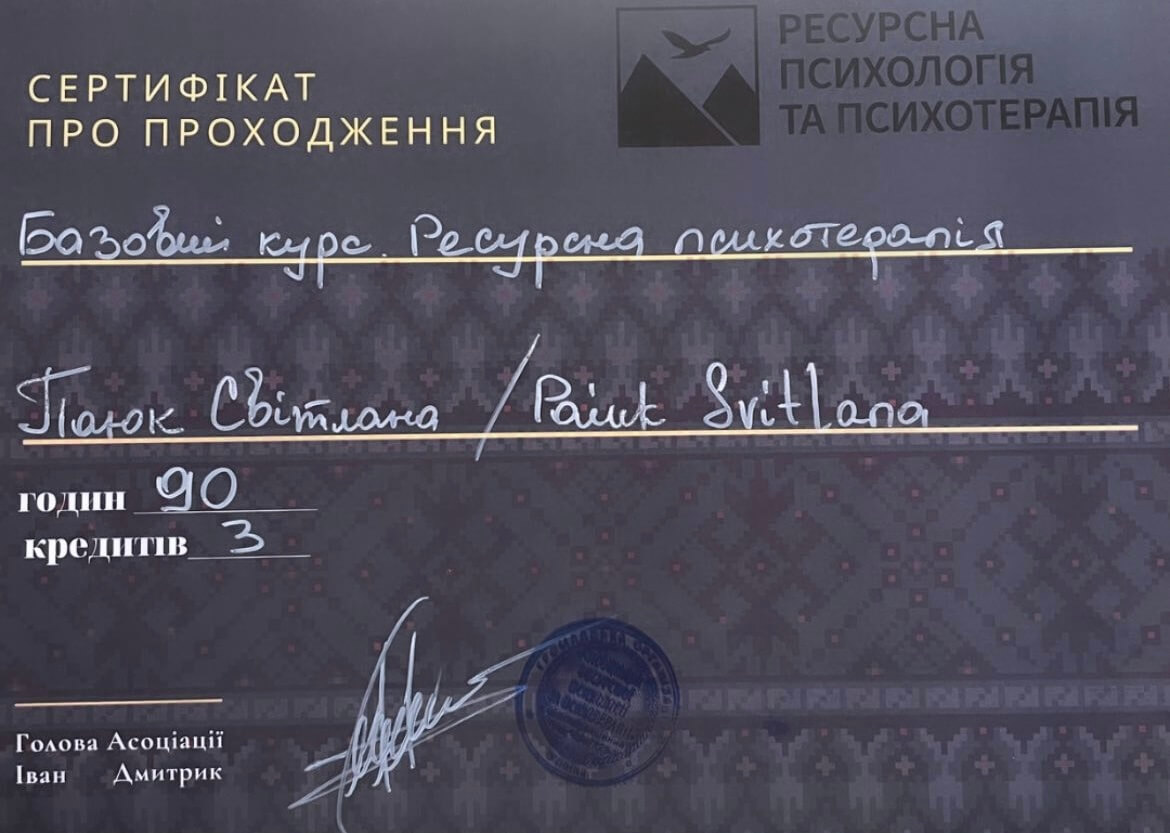 СЕРТИФІКАТ
ПРО ПРОХОДЖЕННЯ
РЕСУРСНА
ПСИХОЛОГІЯ
ТА ПСИХОТЕРАПІЯ
Базовий курс. Ресурсна психотерапія
Паюк Світлана / Paiuk Svitlana
годин 90
кредитів 3
Голова Асоціації
Іван Дмитрик